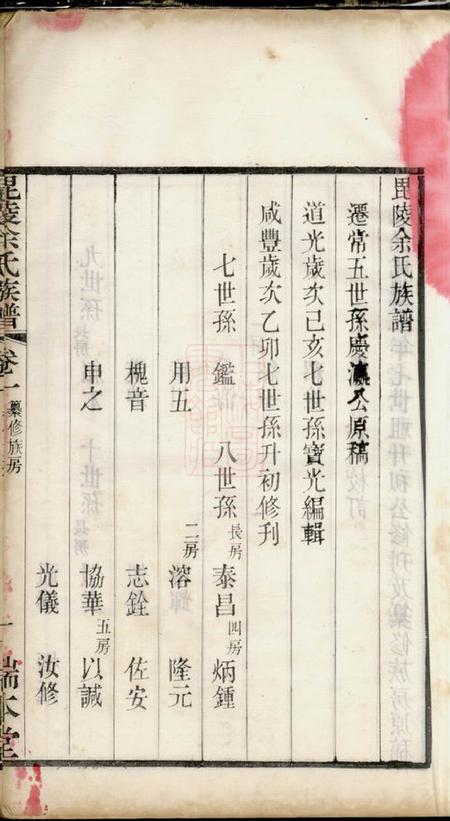 毘陵余氏族譜
遷常五世孫慶瀛公原稿
道光歲次己亥七世孫寶光編輯
咸豐歲次乙卯七世孫升初修刊
七世孫 鑑 八世孫 長房 泰昌 四房 炳鍾
用五 二房 溶 隆元
槐音 志銓 佐安
申之 協華 五房 以諴
光儀 汝修
毘陵余氏族譜 卷一 纂修族房 一 端本堂